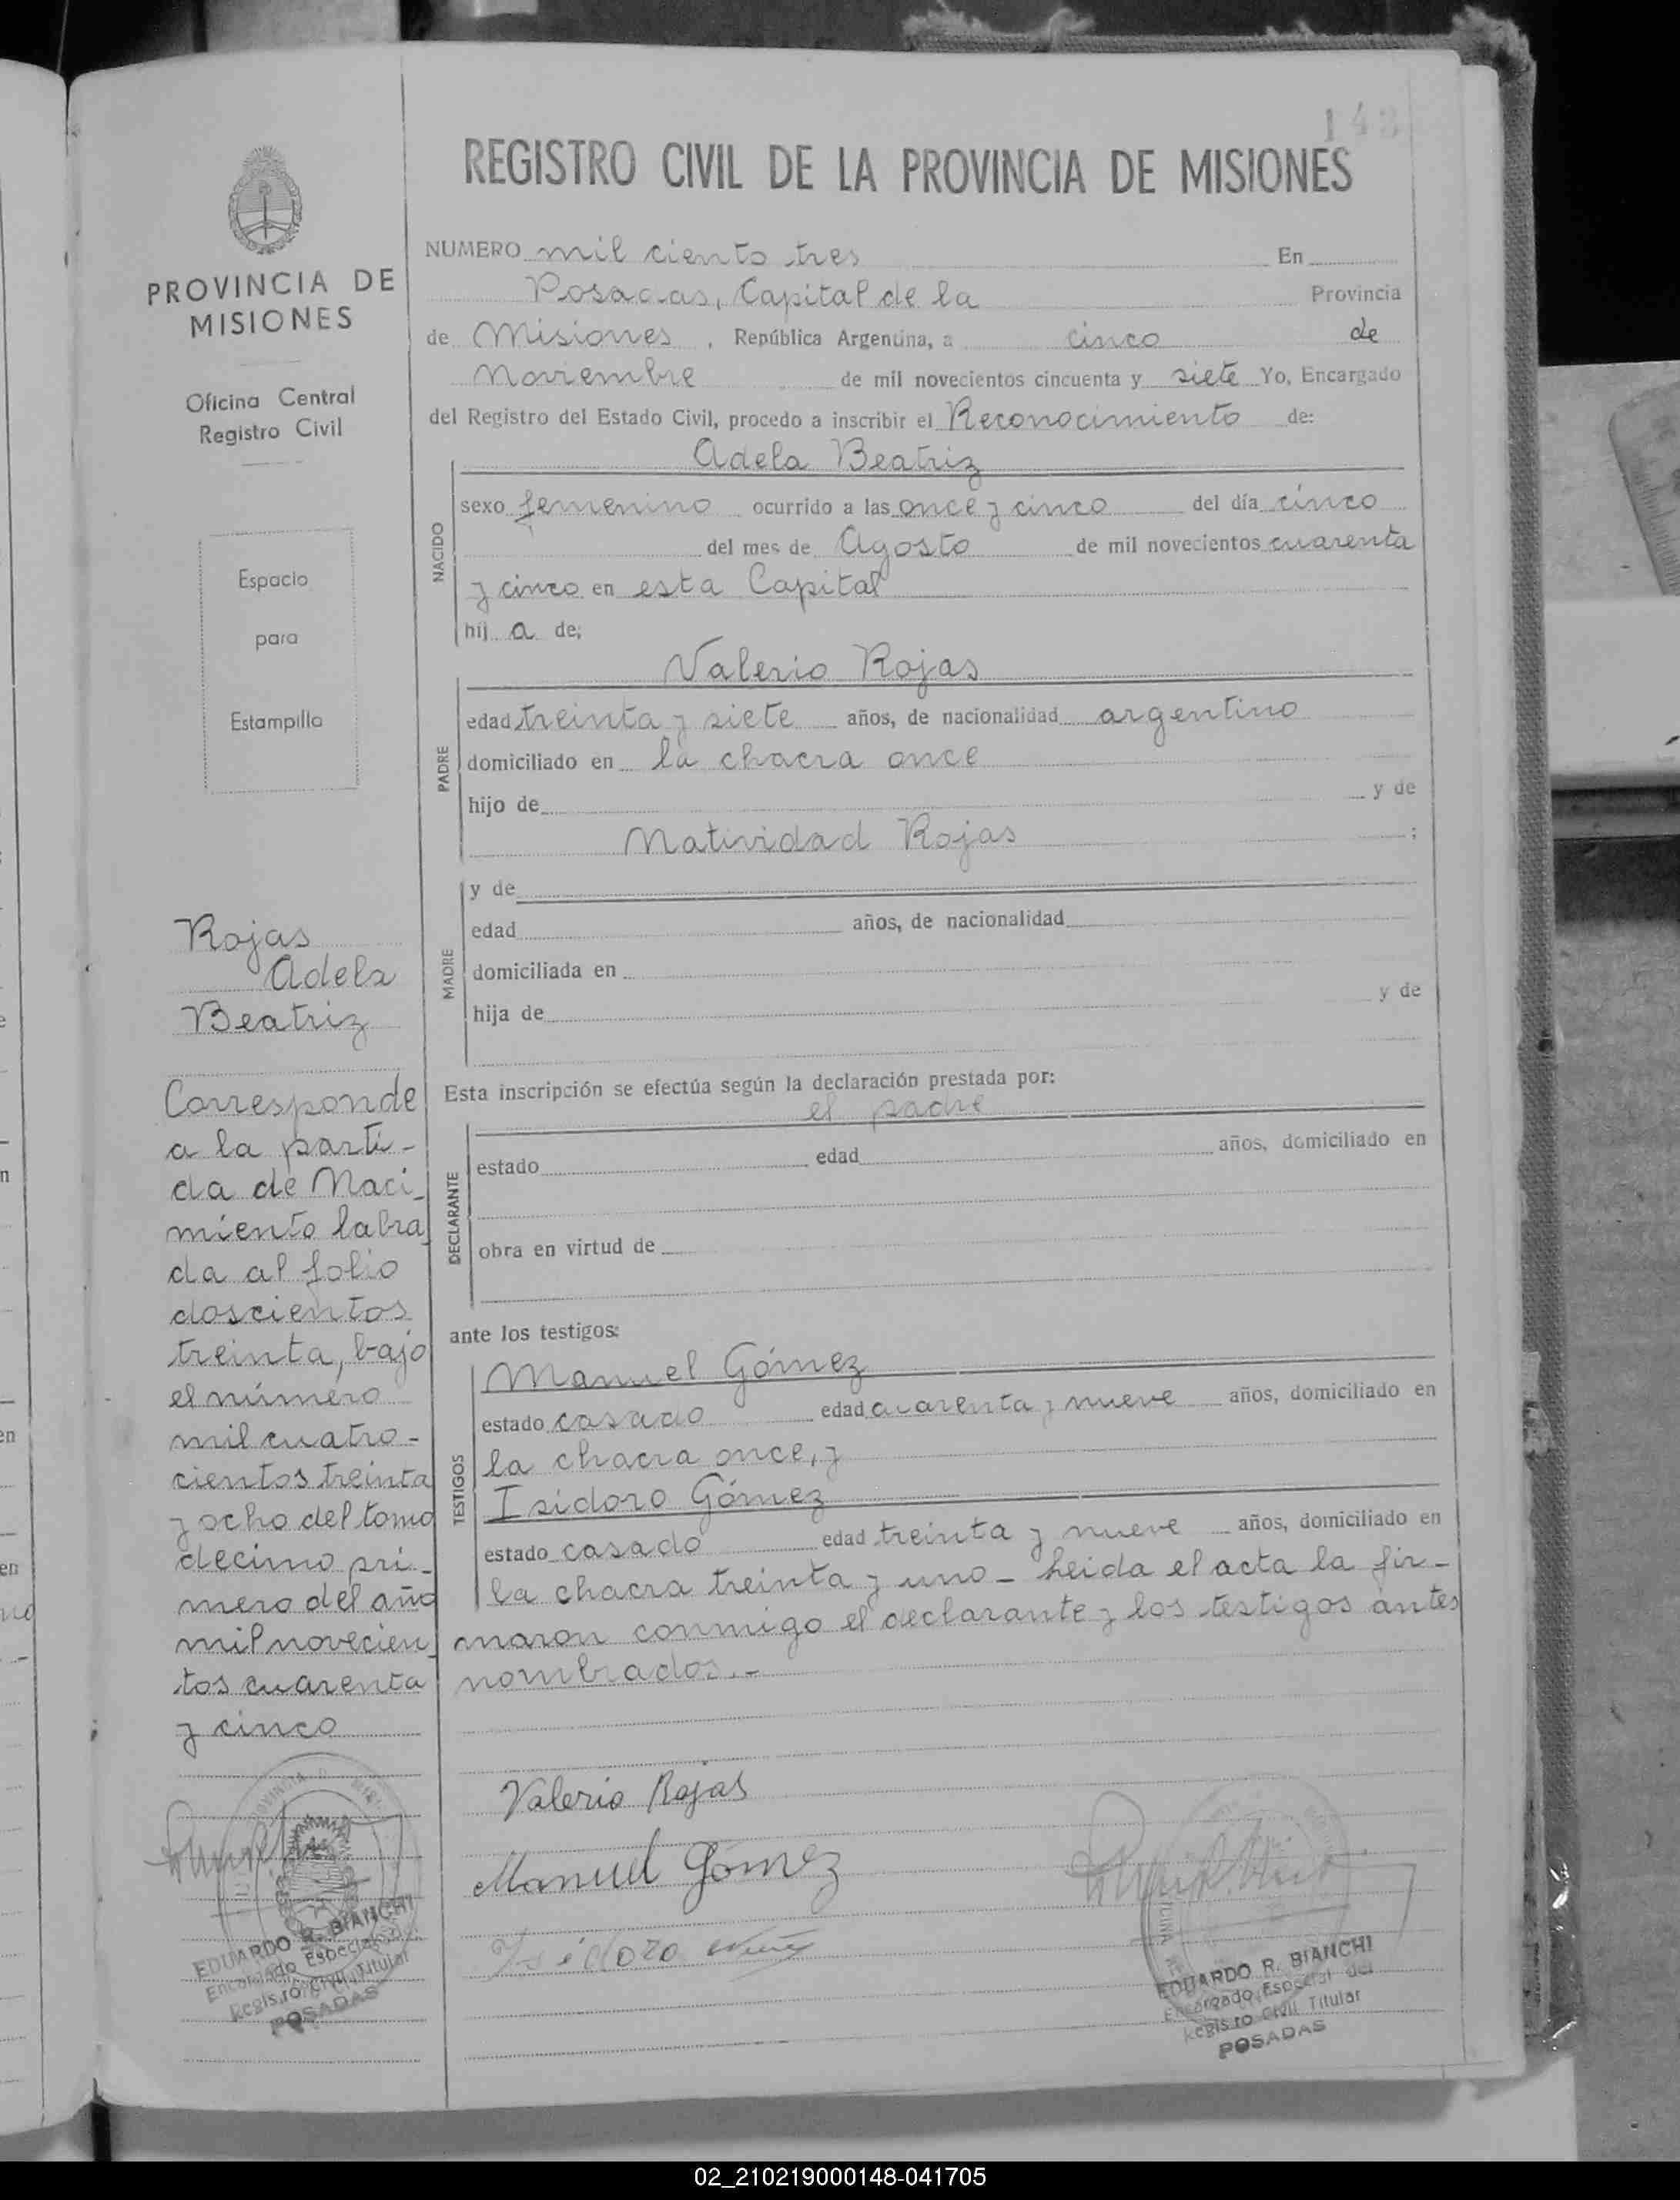 143
REGISTRO CIVIL DE LA PROVINCIA DE MISIONES
PROVINCIA DE
MISIONES
Oficina Central
Registro Civil
Espacio
para
Estampilla
Rojas
Adela
Beatriz
Corresponde
a la parti-
da de Naci-
miento labra-
da al folio
doscientos
treinta, bajo
el número
mil cuatro-
cientos treinta
y ocho del tomo
decimo pri-
mero del año
mil novecien-
tos cuarenta
y cinco
EDUARDO R. BIANCHI
Encargado Especial del
Registro Civil Titular
POSADAS
NUMERO mil ciento tres En
Posadas, Capital de la Provincia
de Misiones, República Argentina, a cinco de
Noviembre de mil novecientos cincuenta y siete Yo, Encargado
del Registro del Estado Civil, procedo a inscribir el Reconocimiento de:
NACIDO
Adela Beatriz
sexo femenino ocurrido a las once y cinco del día cinco
del mes de Agosto de mil novecientos cuarenta
y cinco en esta Capital
hij a de;
PADRE
Valerio Rojas
edad treinta y siete años, de nacionalidad argentino
domiciliado en la chacra once
hijo de y de
Natividad Rojas ;
MADRE
y de
edad años, de nacionalidad
domiciliada en
hija de y de
Esta inscripción se efectúa según la declaración prestada por:
DECLARANTE
el padre
estado edad años, domiciliado en
obra en virtud de
ante los testigos:
TESTIGOS
Manuel Gómez
estado casado edad cuarenta y nueve años, domiciliado en
la chacra once, y
Isidoro Gómez
estado casado edad treinta y nueve años, domiciliado en
la chacra treinta y uno - Leida el acta la fir-
maron conmigo el declarante y los testigos antes
nombrados.-
Valerio Rojas
Manuel Gómez
Isidoro
EDUARDO R. BIANCHI
Encargado Especial del
Registro Civil Titular
POSADAS
02_210219000148-041705